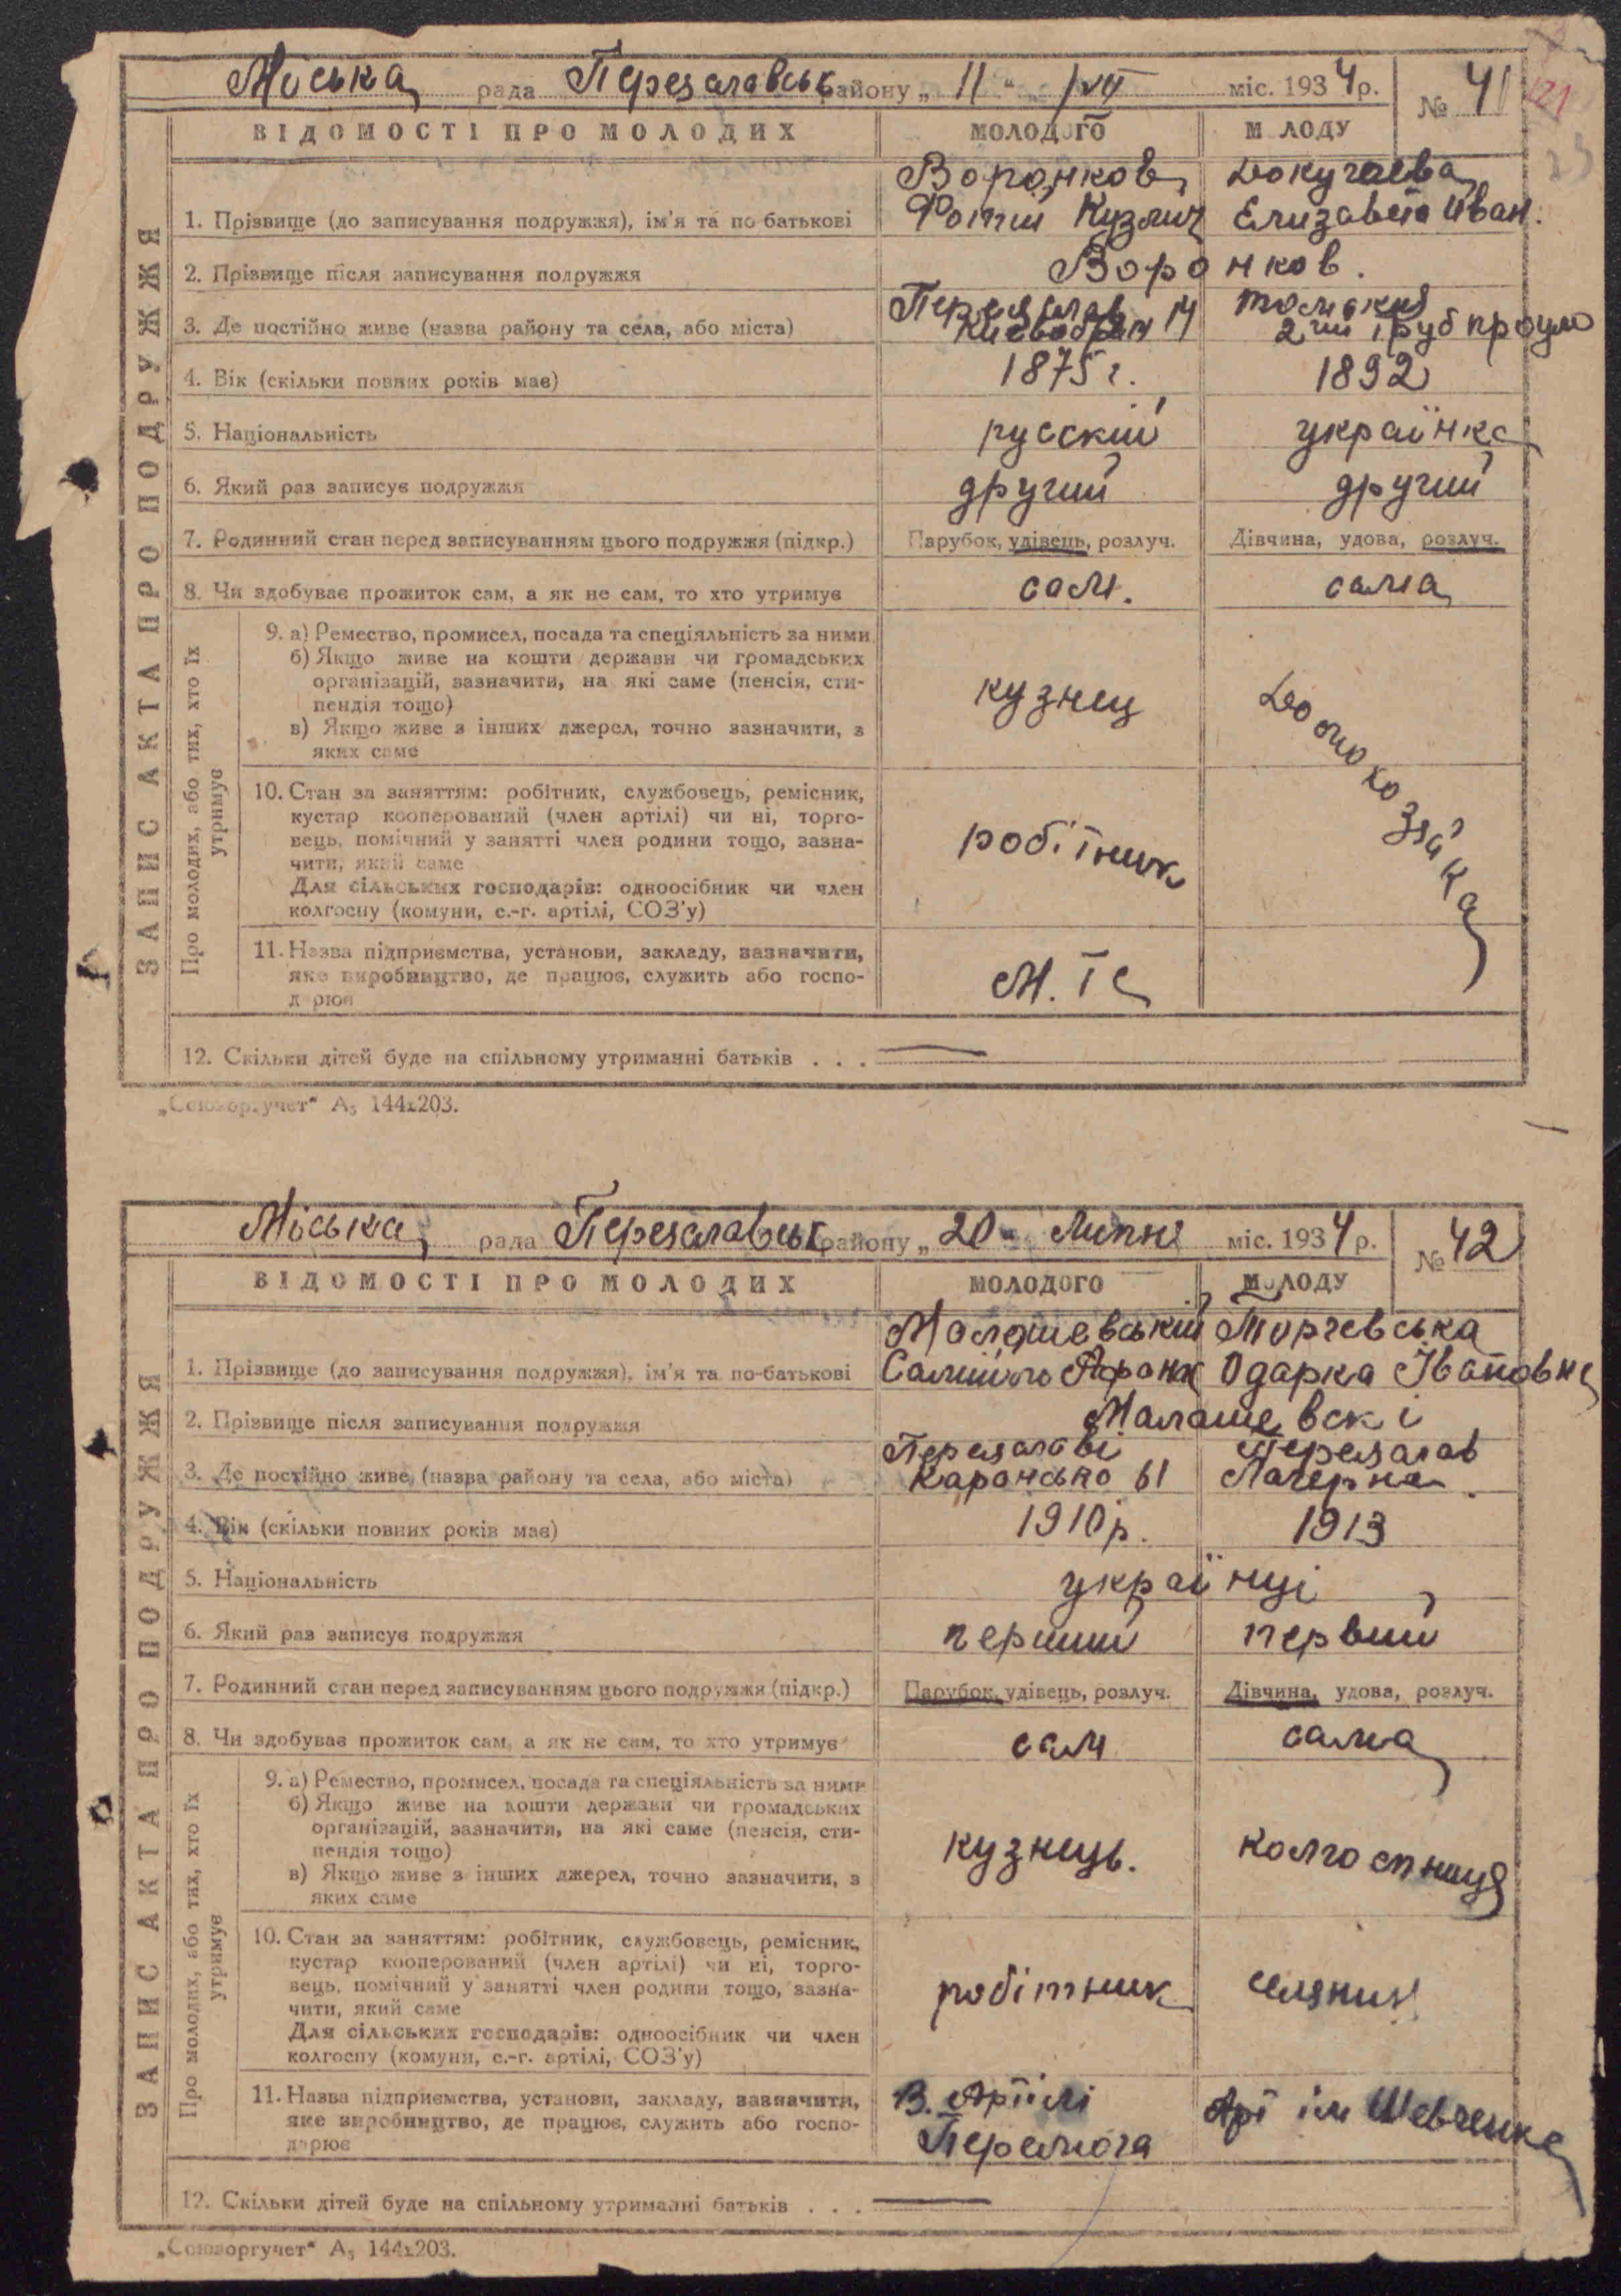 Міська рада Переяславськ району „ 11 “ VII міс. 1934 р. № 41
121
ВІДОМОСТІ ПРО МОЛОДИХ МОЛОДОГО М ЛОДУ
ЗАПИС АКТА ПРО ПОДРУЖЖЯ
1. Прізвище (до записування подружжя), ім'я та по батькові Воронков Фотий Кузмич Докучаева Елизавета Иван.
2. Прізвище після записування подружжя Воронков.
3. Де постійно живе (назва району та села, або міста) Переяслав 14 2 ий
4. Вік (скільки повних років має) 1875 г. 1892
5. Національність русский українка
6. Який раз записує подружжя другий другий
7. Родинний стан перед записуванням цього подружжя (підкр.) Парубок, удівець, розлуч. Дівчина, удова, розлуч.
8. Чи здобуває прожиток сам, а як не сам, то хто утримує сам. сама
Про молодих, або тих, хто їх утримує
9. а) Ремество, промисел, посада та спеціяльність за ними
б) Якщо живе на кошти держави чи громадських
організацій, зазначити, на які саме (пенсія, сти-
пендія тощо)
в) Якщо живе з інших джерел, точно зазначити, з
яких саме
кузнец Домохозяйка
10. Стан за заняттям: робітник, службовець, ремісник,
кустар кооперований (член артілі) чи ні, торго-
вець, помічний у занятті член родини тощо, зазна-
чити, який саме
Для сільських господарів: одноосібник чи член
колгоспу (комуни, с.-г. артілі, СОЗ'у)
робітник
11. Назва підприємства, установи, закладу, зазначити,
яке виробництво, де працює, служить або госпо-
д рює
М. Т С
12. Скільки дітей буде на спільному утриманні батьків . . . —
„Союзоргучет“ А₅ 144х203.
Міська рада Переяславськ району „ 20 “ Липня міс. 1934 р. № 42
ВІДОМОСТІ ПРО МОЛОДИХ МОЛОДОГО МОЛОДУ
ЗАПИС АКТА ПРО ПОДРУЖЖЯ
1. Прізвище (до записування подружжя), ім'я та по-батькові Малашевський Одарка Івановна
2. Прізвище після записування подружжя Малашевскі
3. Де постійно живе (назва району та села, або міста) Переяславі 61 Переяслав
4. Вік (скільки повних років має) 1910 р. 1913
5. Національність українці
6. Який раз записує подружжя перший первий
7. Родинний стан перед записуванням цього подружжя (підкр.) Парубок, удівець, розлуч. Дівчина, удова, розлуч.
8. Чи здобуває прожиток сам, а як не сам, то хто утримує сам сама
Про молодих, або тих, хто їх утримує
9. а) Ремество, промисел, посада та спеціяльність за ними
б) Якщо живе на кошти держави чи громадських
організацій, зазначити, на які саме (пенсія, сти-
пендія тощо)
в) Якщо живе з інших джерел, точно зазначити, з
яких саме
кузнець. колгоспниця
10. Стан за заняттям: робітник, службовець, ремісник,
кустар кооперований (член артілі) чи ні, торго-
вець, помічний у занятті член родини тощо, зазна-
чити, який саме
Для сільських господарів: одноосібник чи член
колгоспу (комуни, с.-г. артілі, СОЗ'у)
робітник
11. Назва підприємства, установи, закладу, зазначити,
яке виробництво, де працює, служить або госпо-
дарює
В. Артілі Перемога Арт ім Шевченка
12. Скільки дітей буде на спільному утриманні батьків . . . —
„Союзоргучет“ А₅ 144х203.